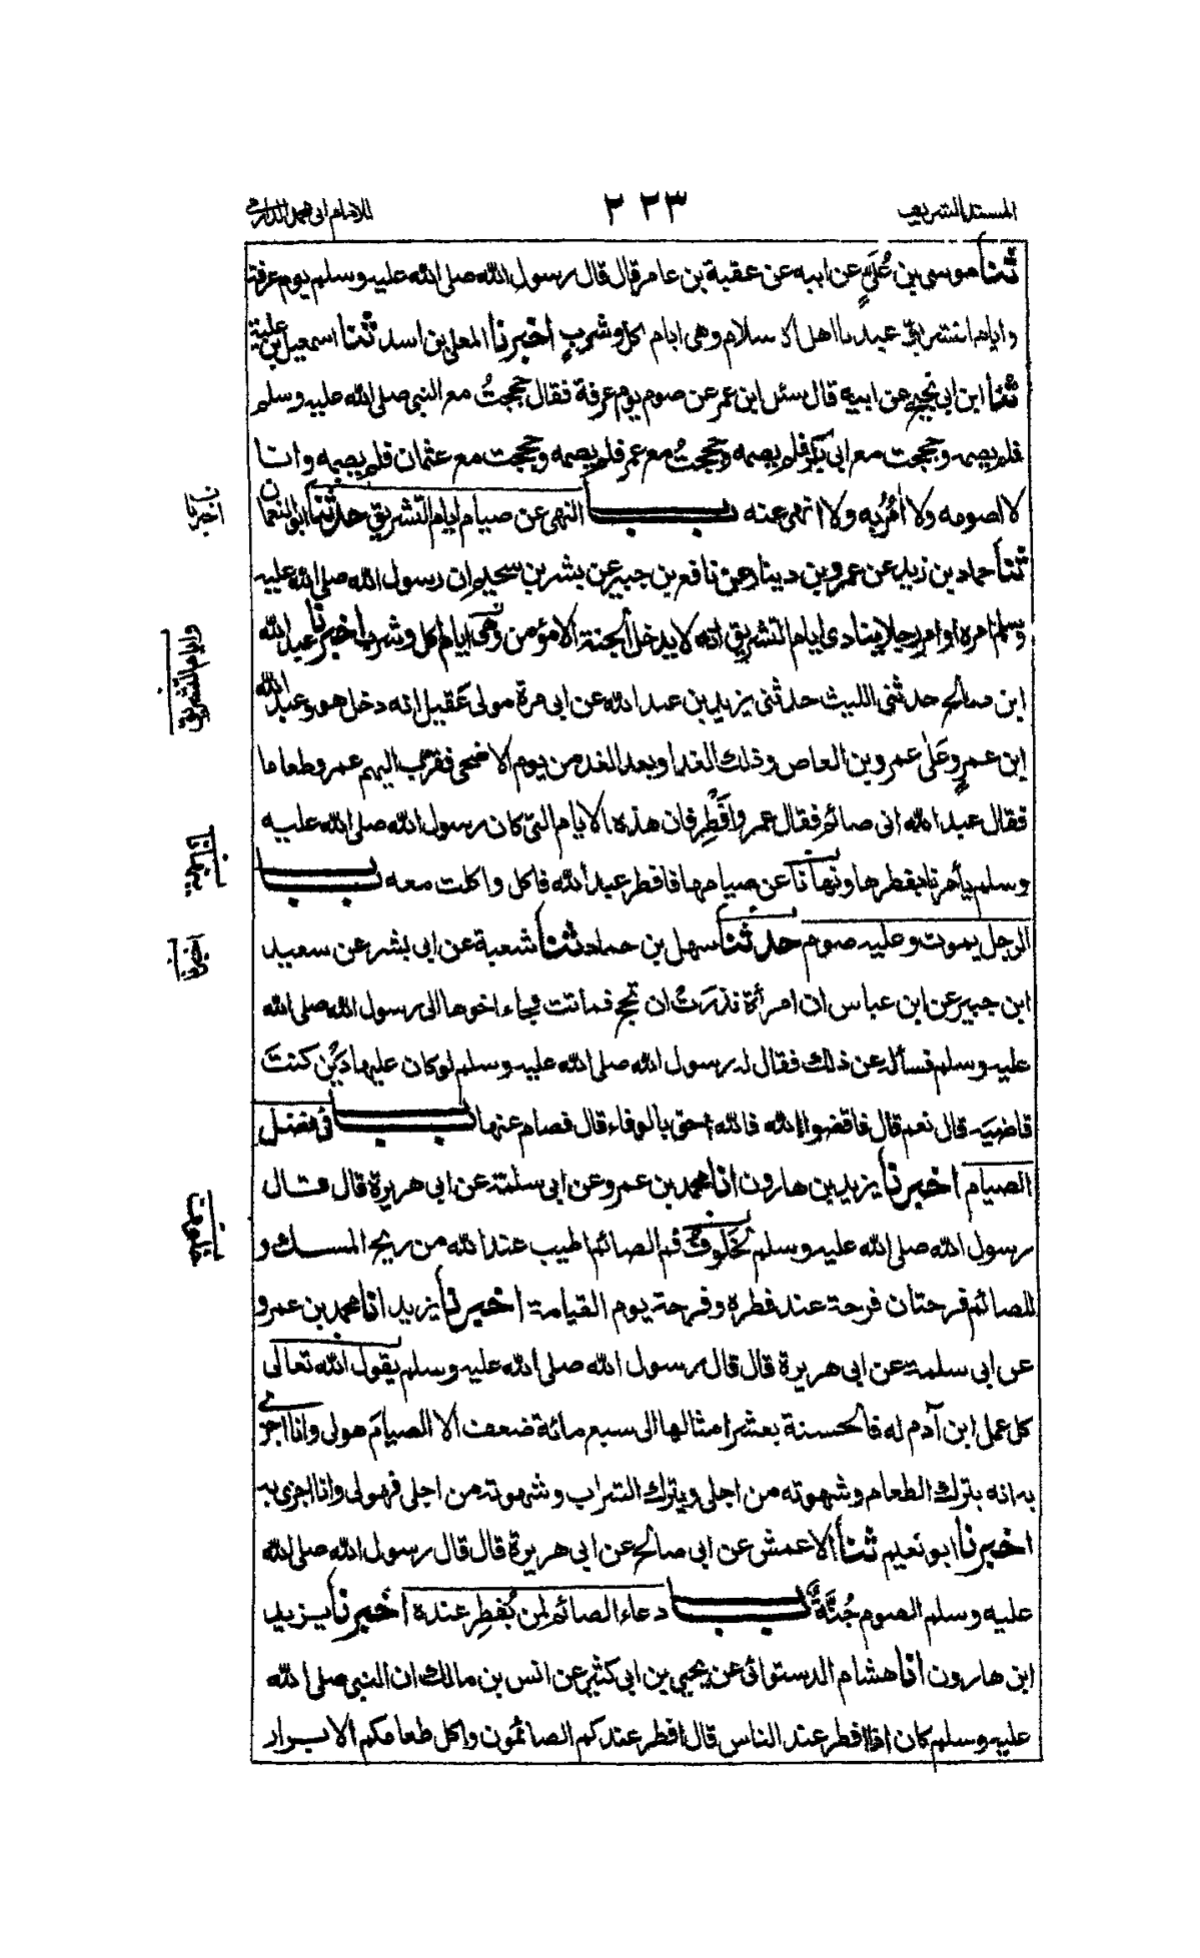 المسند الشريف ٢٢٣ للامام ابى محمد الدارمى
ثنا موسى بن عُلَىٍّ عن ابيه عن عقبة بن عامر قال قال رسول الله صلى الله عليه وسلم يوم عرفة
وايام التشريق عيدنا اهل الاسلام وهى ايام اكل وشربٍ اخبرنا المعلى بن اسد ثنا اسمعيل بن علية
ثنا ابن ابى نجيح عن ابيه قال سئل ابن عمر عن صوم يوم عرفة فقال حججتُ مع النبى صلى الله عليه وسلم
فلم يصمه وحججت مع ابى بكر فلم يصمه وحججتُ مع عمر فلم يصمه وحججت مع عثمان فلم يصمه وانا
لا اصومه ولا اٰمُرُ به ولا انهى عنه باب النهى عن صيام ايام التشريق حدثنا ابو النعمان
ثنا حماد بن زيد عن عمرو بن دينار عن نافع بن جبير عن بشر بن سحيم ان رسول الله صلى الله عليه
وسلم امره او امر رجلا ينادى ايام التشريق انه لا يدخل الجنة الا مؤمن وهى ايام اكل وشرب اخبرنا عبد الله
ابن صالح حدثنى الليث حدثنى يزيد بن عبد الله عن ابى مرة مولى عَقيل انه دخل هو وعبد الله
ابن عمرٍو عَلٰى عمرو بن العاص وذلك الغد او بعد الغد من يوم الاضحى فقرّب اليهم عمرو طعاما
فقال عبد الله انى صائم فقال عمرو اَفْطِر فان هذه الايام التى كان رسول الله صلى الله عليه
وسلم يأمرنا بفطرها ونهانا عن صيامها فافطر عبد الله فاكل واكلت معه باب
الرجل يموت وعليه صوم حدثنا سهل بن حماد ثنا شعبة عن ابى بشر عن سعيد
ابن جبير عن ابن عباس ان امرأة نذرَتْ ان تحج فماتت فجاء اخوها الى رسول الله صلى الله
عليه وسلم فسأله عن ذلك فقال له رسول الله صلى الله عليه وسلم لو كان عليها دَيْن كنتَ
قاضيَه قال نعم قال فاقضوا الله فالله احق بالوفاء قال فصام عنها باب فى فضل
الصيام اخبرنا يزيد بن هارون انا محمد بن عمرو عن ابى سلمة عن ابى هريرة قال قال
رسول الله صلى الله عليه وسلم لخلوفُ فم الصائم اطيب عند الله من ريح المسك و
للصائم فرحتان فرحة عند فطره وفرحة يوم القيامة اخبرنا يزيد انا محمد بن عمرو
عن ابى سلمة عن ابى هريرة قال قال رسول الله صلى الله عليه وسلم يقول الله تعالى
كل عمل ابن آدم له فالحسنة بعشر امثالها الى سبع مائة ضعف الا الصيامَ هو لى وانا اجزى
به انه يترك الطعام وشهوته من اجلى ويترك الشراب وشهوته من اجلى فهو لى وانا اجزى به
اخبرنا ابو نعيم ثنا الاعمش عن ابى صالح عن ابى هريرة قال قال رسول الله صلى الله
عليه وسلم الصوم جُنَّةٌ باب دعاء الصائم لمن يُفطِر عنده اخبرنا يزيد
ابن هارون انا هشام الدستوائى عن يحيى بن ابى كثير عن انس بن مالك ان النبى صلى الله
عليه وسلم كان اذا افطر عند الناس قال افطر عندكم الصائمون واكل طعامكم الابرار
اخبرنا
ن
وايام التشريق
ن
ينهانا
ن
اخبرنا
ن